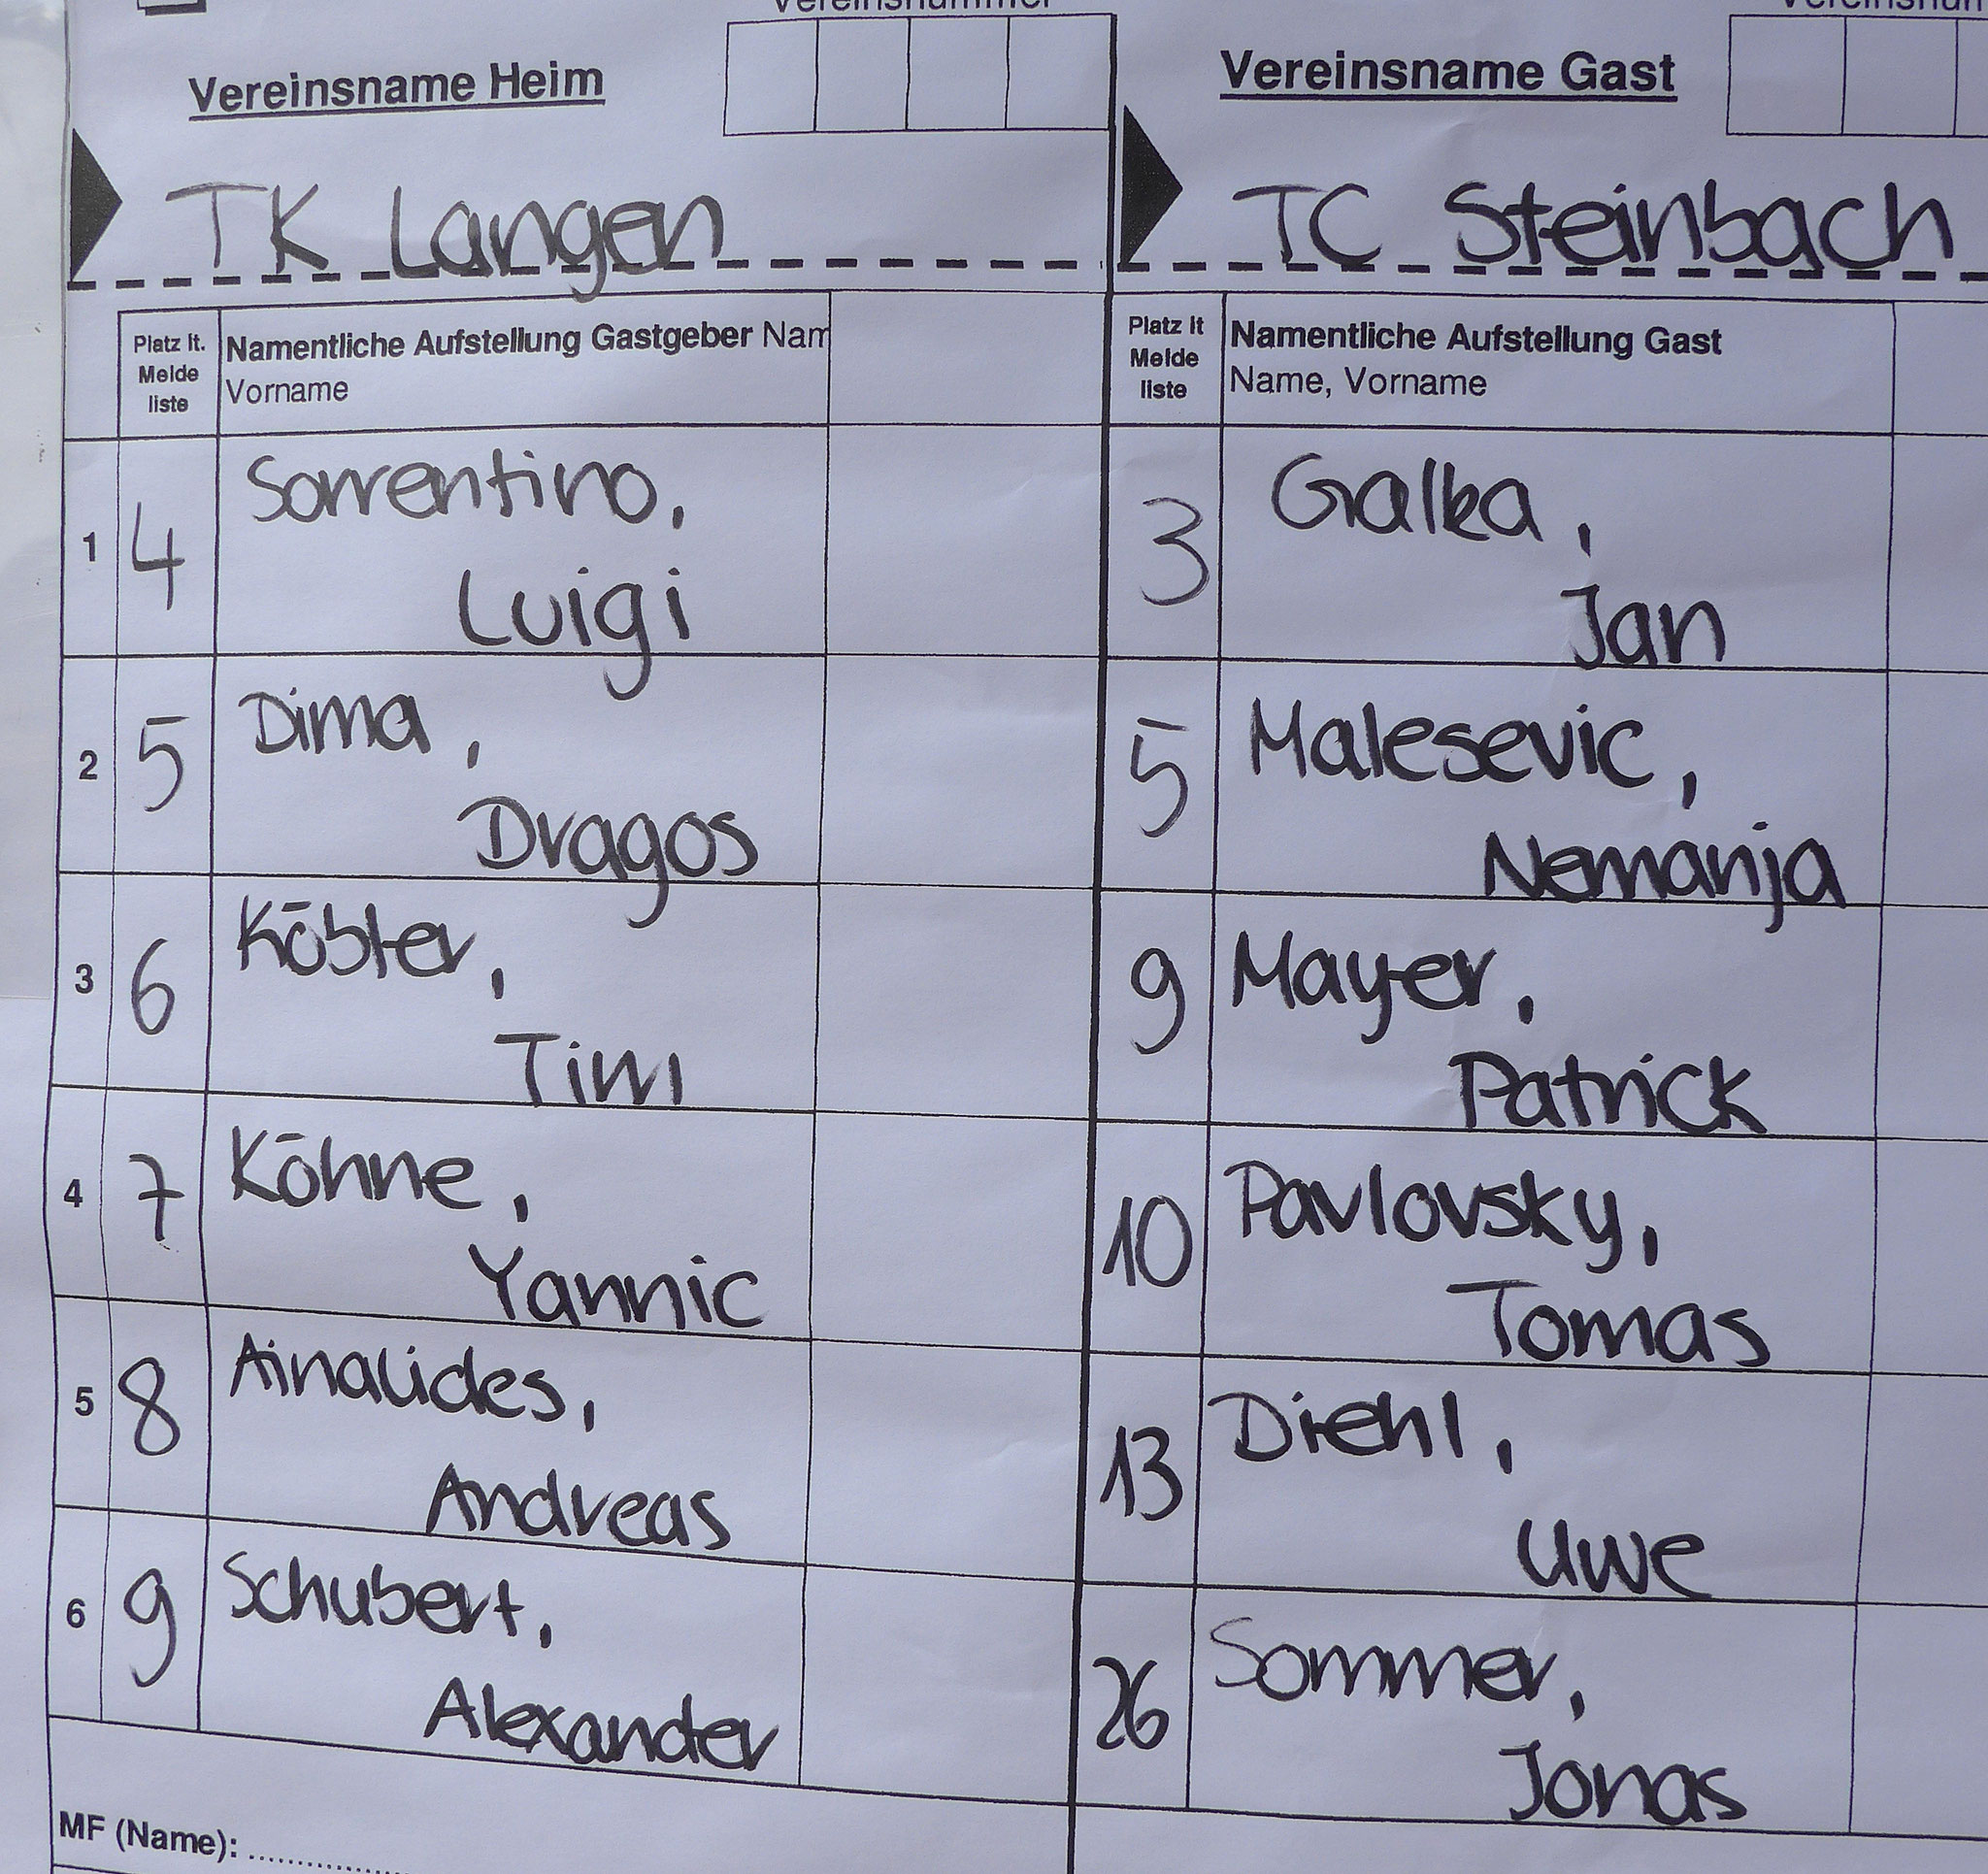 Vereinsname Heim
TK Langen
Platz lt. Melde liste
Namentliche Aufstellung Gastgeber Nam
Vorname
1 4 Sorrentino,
Luigi
2 5 Dima,
Dragos
3 6 Köbler,
Tim
4 7 Köhne,
Yannic
5 8
Andreas
6 9 Schubert,
Alexander
MF (Name):
Vereinsname Gast
TC Steinbach
Platz lt Melde liste
Namentliche Aufstellung Gast
Name, Vorname
3 Galka,
Jan
5 Malesevic,
Nemanja
9 Mayer,
Patrick
10 Pavlovsky,
Tomas
13 Diehl,
Uwe
26 Sommer,
Jonas